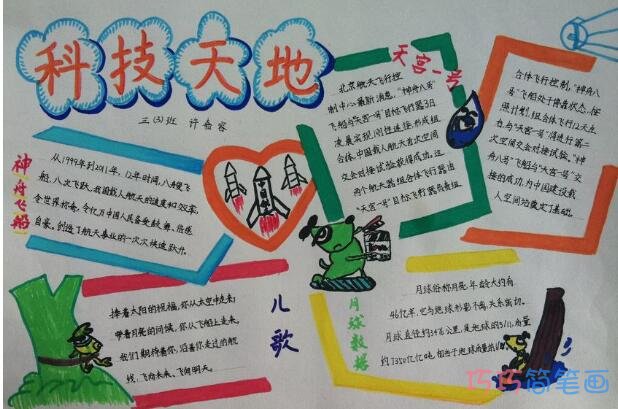 科技天地
三(3)班 许嘉容
神舟飞船
从1999年到2011年,12年时间,八艘飞
船,八次飞跃,我国载人航天的速度和效率,
令世界称奇,令亿万中国人民备受鼓舞,倍感
自豪。创造了航天事业的一次次快速跃升。
天宫一号
北京航天飞行控
制中心最新消息,“神舟八号”
飞船与“天宫一号”目标飞行器3日
凌晨实现刚性连接,形成组
合体,中国载人航天首次空间
交会对接试验获得成功。这
两个航天器组合体飞行器由
“天宫一号”目标飞行器负责组
合体飞行控制,“神舟八
号”飞船处于停靠状态。按
照计划,组合体飞行12天左
右,与“天宫一号”将进行第二
次空间交会对接试验。“神
舟八号”飞船与“天宫一号”交
接的成功,为中国建设载
人空间站奠定了基础。
儿歌
捧着太阳的祝福,你从太空中走来;
带着月亮的问候,你从飞船上走来。
我们期待着你,沿着你走过的航
线,飞向未来、飞向明天。
月球数据
月球俗称月亮,年龄大约有
46亿年,它与地球形影不离,关系密切。
月球直径约3476公里,是地球的3/11。质量
约7350亿亿吨,相当于地球质量的1/81
巧巧简笔画